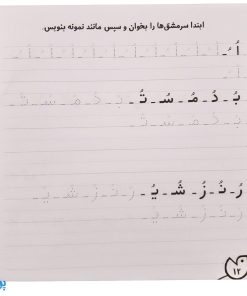 ابتدا سرمشق‌ها را بخوان و سپس مانند نمونه بنویس.
اُ ـُ - اُ - اُ - اُ - اُ - اُ - اُ - اُ - اُ
اُ -
بُ - دُ - مُ - سُ - تُ - بُ - دُ - مُ - سُ - تُ -
بُ - دُ - مُ - سُ - تُ -
رُ - نُ - زُ - شُ - یُ - رُ - نُ - زُ - شُ - یُ -
رُ - نُ - زُ - شُ - یُ -
۱۲